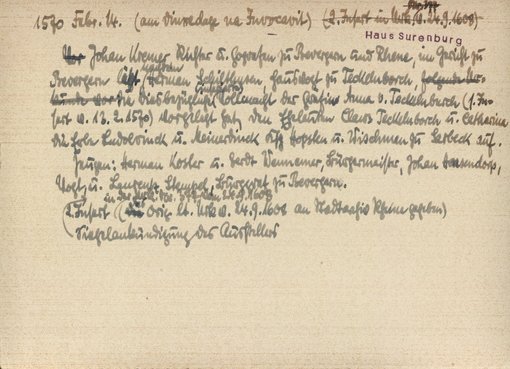 1570 Febr. 14. (am Dinxedage na Invocavit) (2. Insert in Urk. v. 24.9.1608)
Haus Surenburg
Vor Johan Kremer Richter u. Gografen zu Bevergern und Rhene, im Gericht zu
Bevergern läßt Herman Hausvogt zu Tecklenborch,
die diesbezügliche Vollmacht der Gräfin Anna v. Tecklenborch (1. In-
sert v. 13.2.1570) vorgelegt hat, den Eheleuten Claus Tecklenborch u. Catharina
die Erbe Ludovinck u. Meinerdinck Ksp Hopsten u. Wischman zu Gerbeck auf.
Zeugen: Herman Koster u. Gerdt Wennemer, Bürgermeister, Johan
Vogt u. Laurentz Stempel, Burggraf zu Bevergern.
(2. Insert (Orig. lt. Urk. v. 24.9.1608 an Stadtarchiv Rheine gegeben)
Siegelankündigung des Ausstellers